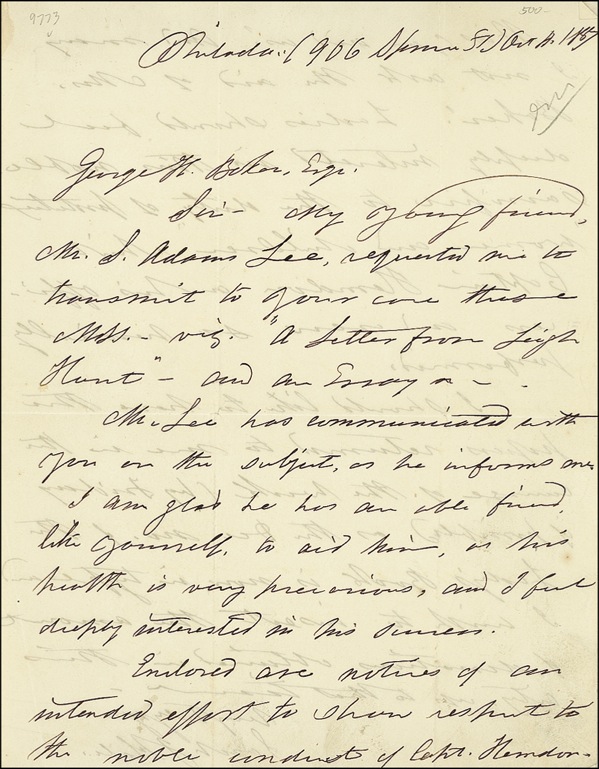 9773
500-
Philada: (906 Spruce St) Oct
George H. Boker, Esqr.
Sir - My young friend,
Mr. S. Adams Lee, requested me to
transmit to your care these
MSS. - viz. "A Letter from Leigh
Hunt" - and an Essay -
Mr. Lee has communicated with
you on the subject, as he informs me.
I am glad he has an able friend,
like yourself, to aid him, as his
health is very precarious, and I feel
deeply interested in his success.
Enclosed are notices of an
intended effort to show respect to
the noble conduct of Capt. Herndon-